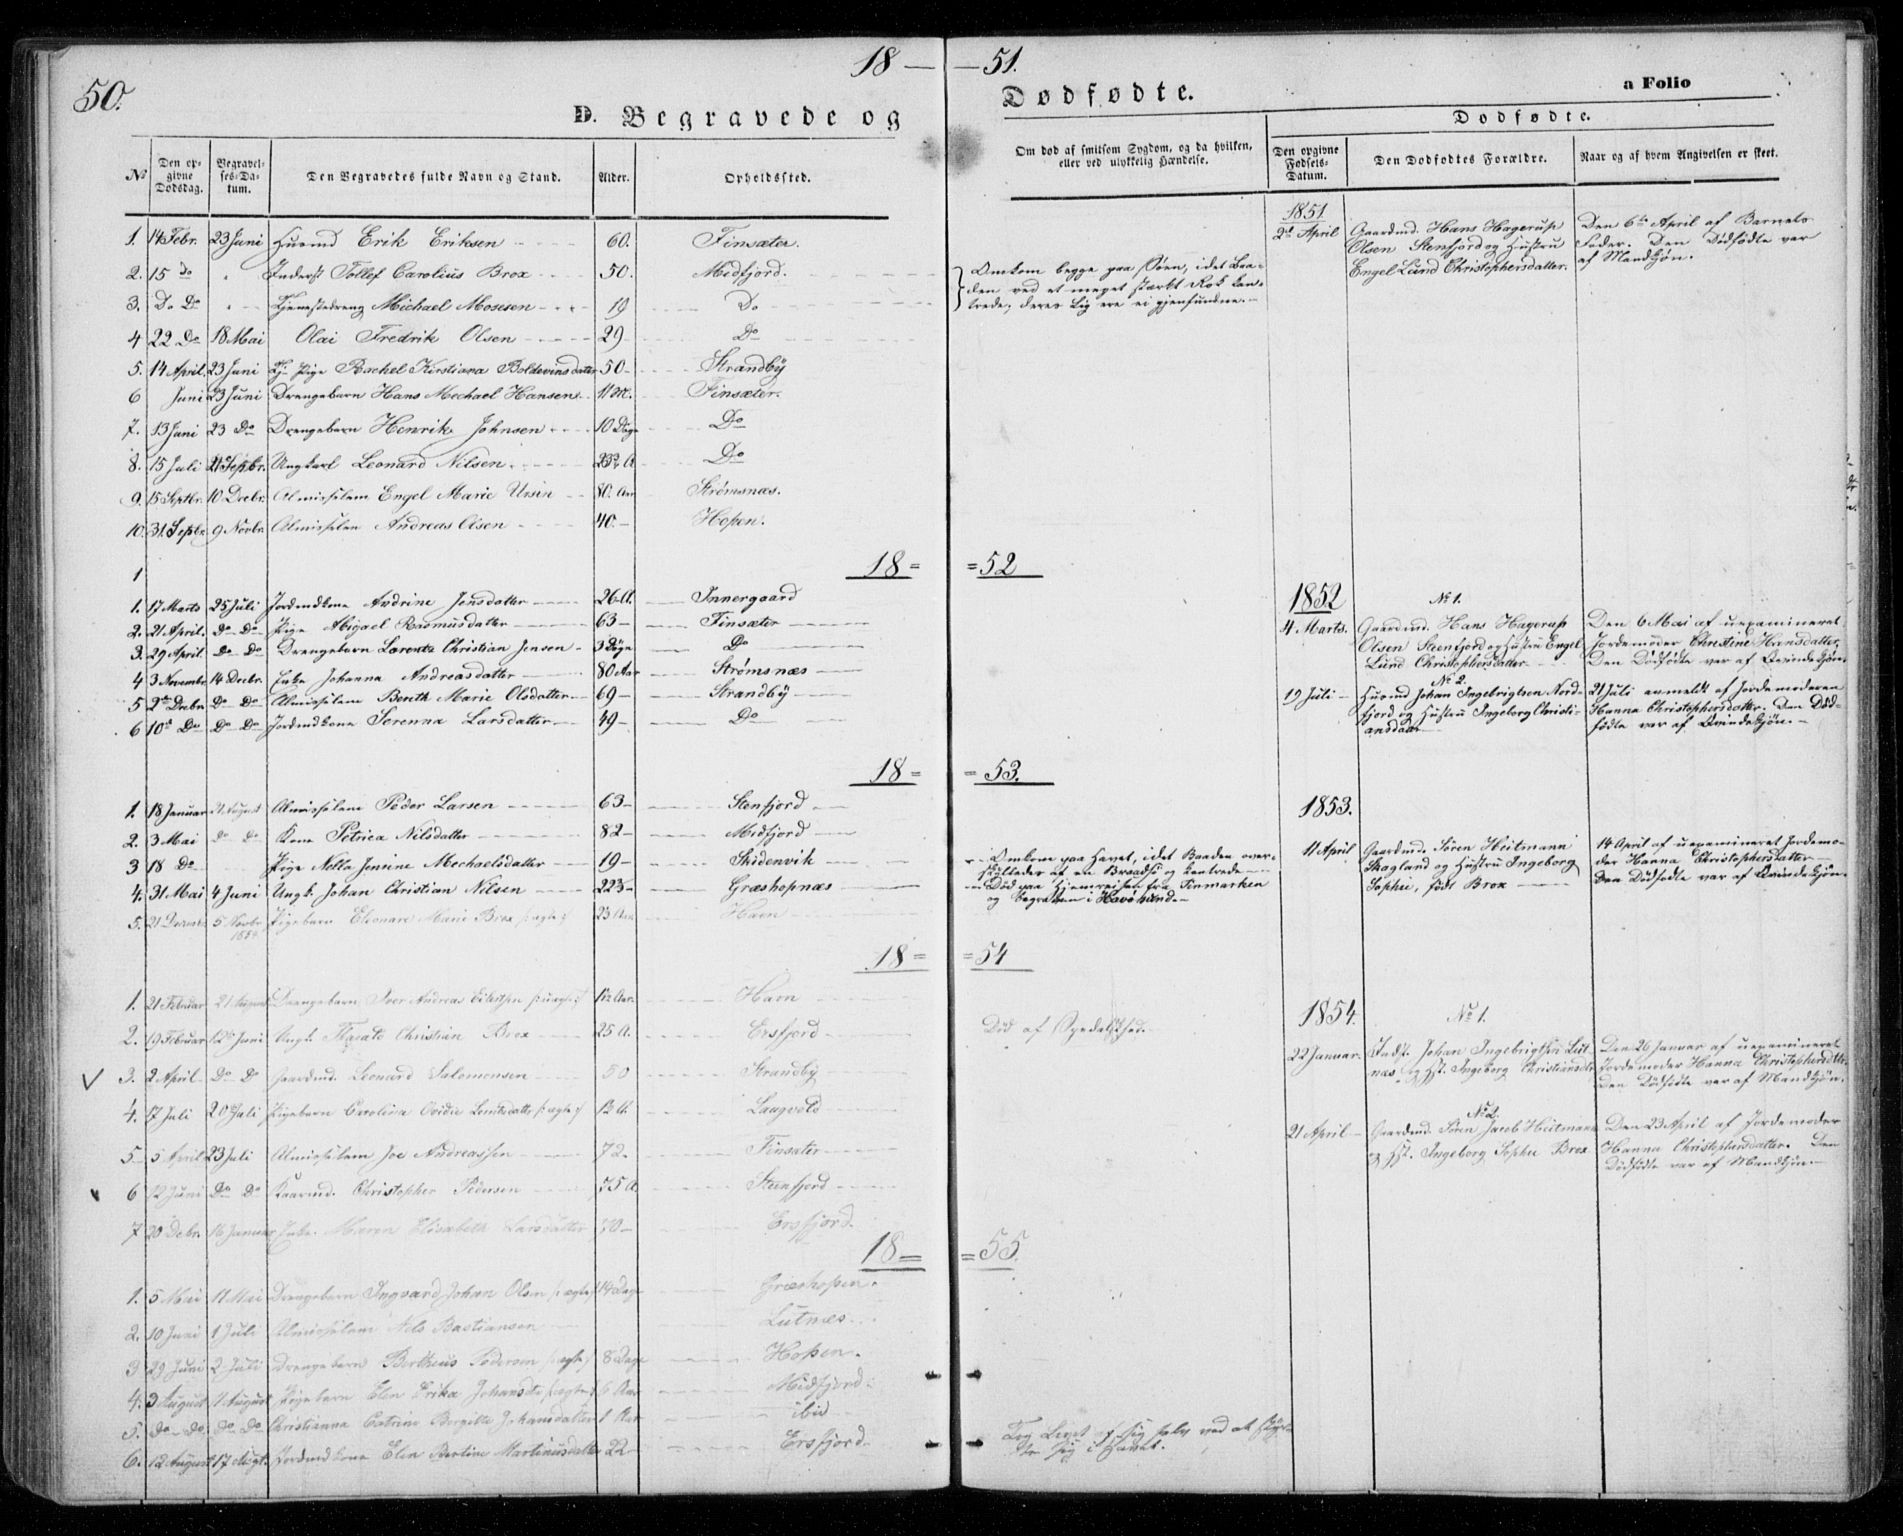 50.
18 — — 51.
D. Begravede og Dødfødte. a Folio
Dødfødte.
No
Den opgivne Dødsdag.
Begravelses-Datum.
Den Begravedes fulde Navn og Stand.
Alder.
Opholdssted.
Om død af smitsom Sygdom, og da hvilken, eller ved ulykkelig Hændelse.
Den opgivne Fødsels-Datum.
Den Dødfødtes Forældre.
Naar og af hvem Angivelsen er skeet.
1. 14 Febr. 23 Juni Huusmd Erik Eriksen 60. Finsæter.
2. 15 do " Inderst Tollef Carolius Brox 50. Midfjord.
3. Do Do " Tjenestedreng Michael Mosesen 19 Do
Omkom begge paa Søen, idet Baa-
den ved et meget stærkt Rok kan-
trede, deres Lig ere ei gjenfundne.
4 22 Do 18 Mai Olai Fredrik Olsen 29 Do
5. 14 April. 23 Juni Tj. Pige Rachel Kirstiana Boldevinsdatter 50 Strandby
6 Juni 23 Juni Drengebarn Hans Mechael Hansen 11 M. Finsæter.
7. 13 Juni 23 Do Drengebarn Henrik Johnsen 10 Dage Do
8. 15 Juli 21 Septbr. Ungkarl Leonard Nilsen A. Do
9. 15 Septbr. 10 Decbr. Almisselem Engel Marie Ursin 80. Aar Strømsnæs.
10. 31. Septbr. 9 Novbr. Almisselem Andreas Olsen 40 Hopen.
1851
2d April Gaardmd. Hans Hagerup
Olsen Stenfjord og Hustru
Engel Lund Christophersdatter.
Den 6te April af Barnets
Fader. Den Dødfødte var
af Mandkjøn.
18 = = 52
1
1. 17 Marts 25 Juli Jordmdkone Andrine Jensdatter 26 A. Innergaard
2. 21 April. Do Do Pige Abigael Rasmusdatter 63 Finsæter
3. 29 April Do Do Drengebarn Lorents Christian Jensen 3 Dage Do
4 3 Novembr 14 Decbr. Enke Johanna Andreasdatter 80 Aar Strømsnæs
5 2den Decbr. Do Do Almisselem Benth Marie Olsdatter 69 Strandby
6 10de Do Do Do Jordmdkone Serenna Larsdatter 49 Do
1852
No 1.
4 Marts. Gaardmd. Hans Hagerup
Olsen Steenfjord og Hustru Engel
Lund Christophersdatter
Den 6 Mai af uexamineret
Jordemoder Christine Hansdatter,
Den Dødfødte var af Qvindekjøn.
No 2.
19 Juli Huusmd Johan Ingebrigtsen Nord-
fjord og Hustru Ingeborg Christi-
ansdatter
21 Juli anmeldt af Jordemoderen
Hanna Christophersdatter. Den Død-
fødte var af Qvindekjøn.
18 = = 53.
1. 18 Januar 21 August Almisselem Peder Larsen 63 Stenfjord
2. 3 Mai Do Do Kone Petrica Nilsdatter 82 Midfjord
3 18 Do Pige Nella Jenine Mechaelsdatter 19 Skidenvik
Omkom paa Havet, idet Baaden over-
skylledes af en Braadsø og kantrede
4. 31 Mai 4 Juni Ungk. Johan Christian Nilsen 22 Græshopnæs
Død paa Hjemreisen fra Finmarken
og begraven i Havøsund.
5. 21 Decembr 5 Novbr. 1854. Pigebarn Elionare Marie Brox /: ægte :/ Havn
1853.
11 April Gaardmd. Søren Heitmann
Skagland og Hustru Ingeborg
Sophie, født Brox
14 April af uexamineret Jordemo-
der Hanna Christophersdatter
Den Dødfødte var af Qvindekjøn.
18 = = 54
1. 21 Februar 21 August Drengebarn Iver Andreas Eilertsen /: uægte :/ Aar. Havn
2. 19 Februar 12te Juni Ungk. Christian Brox 25 A. Ersfjord
Død af Spedalskhed.
3. 2 April Do Do Gaardmd. Leonard Salomonsen 50 Strandby
4. 17 Juli 20 Juli Pigebarn Carolina Ovidia /: ægte :/ A. Laugvold
5 5 April 23 Juli Almisselem Joe Andreassen 72. Finsæter
6 12 Juni Do Do Kaarmd. Christopher Pedersen 75 A. Steenfjord
7 20 Debr. 16 Januar Enke Maren Elisabeth Larsdatter 70 Ersfjord
1854.
No 1.
22 Januar. Indst. Johan Ingebrigtsen Lut-
næs og Hst. Ingeborg Christiansdtr
Den 26 Januar af uexamineret
Jordemoder Hanna Christophersdtr.
Den Dødfødte var af Mandkjøn.
No 2.
21 April Gaardmd. Søren Jacob Heitmann
og Hst. Ingeborg Sophie Brox
Den 23 April af Jordemoder
Hanna Christophersdatter. Den
Dødfødte var af Mandkjøn.
18 = = 55.
1. 5 Mai 17 Mai Drengebarn Ingvard Johan Olsen /: ægte :/ 14 Dage Græshopen.
2. 10 Juni 1 Juli Almisselem Nils Bastiansen Lutnæs.
3 29 Juni 2 Juli Drengebarn Bertheus Pedersen /: ægte :/ 8 Dage Hopen.
4. 3 August 11 August Pigebarn Elen Erika Johansdtr /: ægte :/ 6 Aar Midfjord.
5. Do Do Do Do Christianna Catrine Bergitte Johansdatter 1 Aar ibid
6. 12 August 17 Augt. Jordmdkone Elen Bertine Martinusdatter 22 Ersfjord
Tog Livet af sig selv ved at styr-
te sig i Havet.